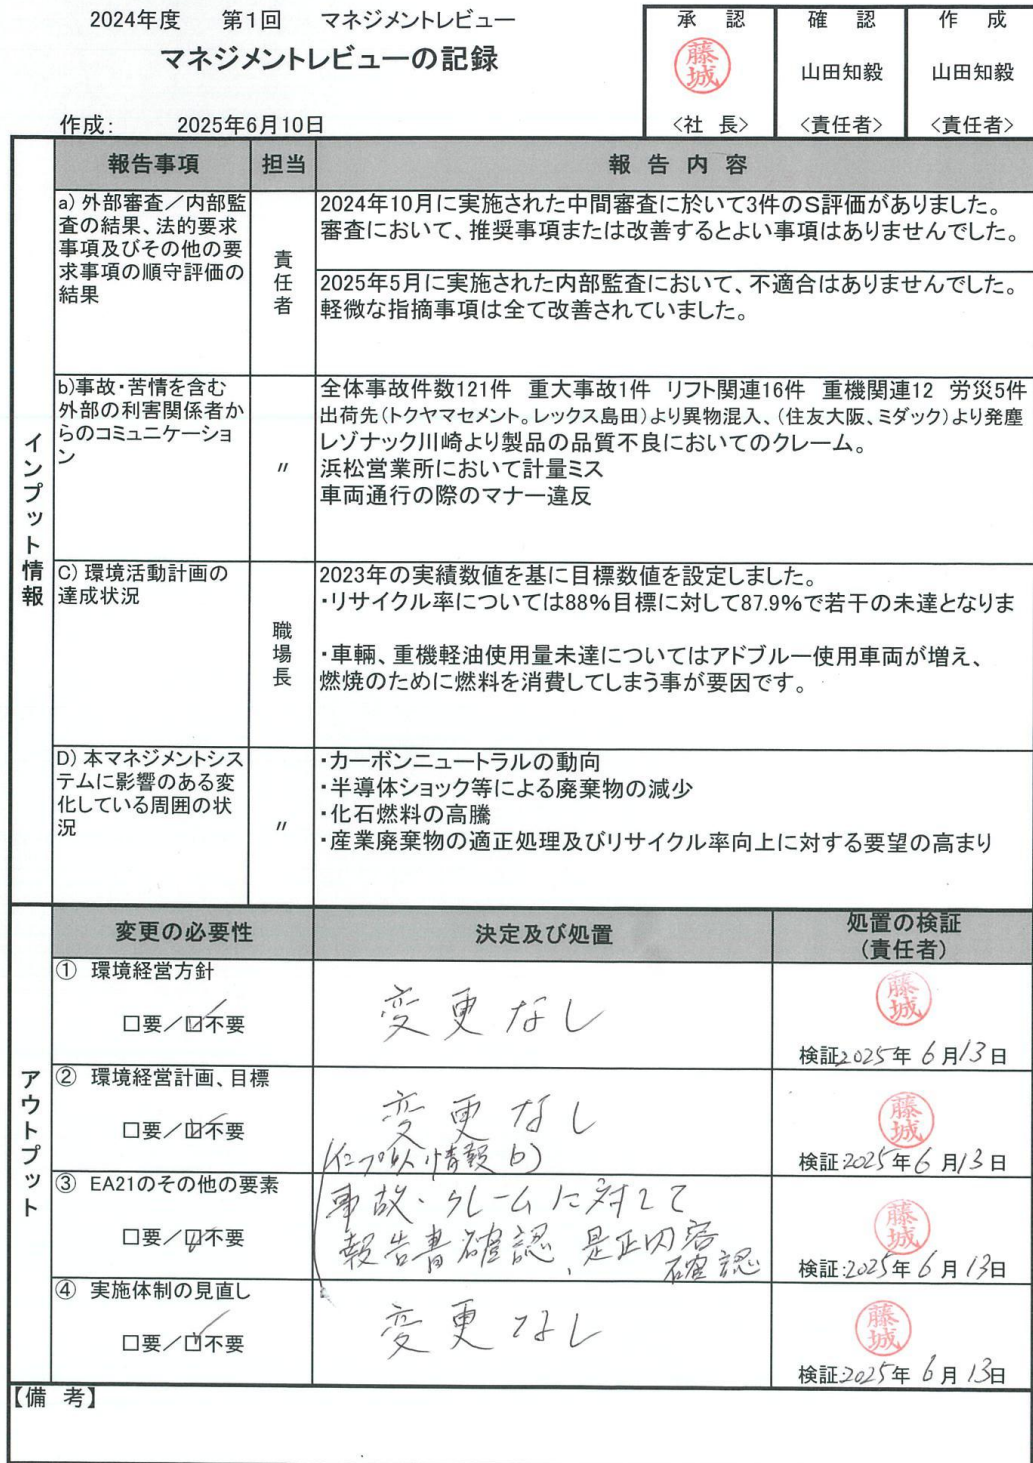 2024年度　第1回　マネジメントレビュー
マネジメントレビューの記録
作成：　2025年6月10日
承　認
確　認
作　成
藤城
山田知毅
山田知毅
<社　長>
<責任者>
<責任者>
インプット情報
報告事項
担当
報　告　内　容
a) 外部審査／内部監
査の結果、法的要求
事項及びその他の要
求事項の順守評価の
結果
責任者
2024年10月に実施された中間審査に於いて3件のS評価がありました。
審査において、推奨事項または改善するとよい事項はありませんでした。
2025年5月に実施された内部監査において、不適合はありませんでした。
軽微な指摘事項は全て改善されていました。
b)事故・苦情を含む
外部の利害関係者か
らのコミュニケーショ
ン
〃
全体事故件数121件　重大事故1件　リフト関連16件　重機関連12　労災5件
出荷先(トクヤマセメント。レックス島田)より異物混入、(住友大阪、ミダック)より発塵
レゾナック川崎より製品の品質不良においてのクレーム。
浜松営業所において計量ミス
車両通行の際のマナー違反
C) 環境活動計画の
達成状況
職場長
2023年の実績数値を基に目標数値を設定しました。
・リサイクル率については88%目標に対して87.9%で若干の未達となりま
・車輌、重機軽油使用量未達についてはアドブルー使用車両が増え、
燃焼のために燃料を消費してしまう事が要因です。
D) 本マネジメントシス
テムに影響のある変
化している周囲の状
況
〃
・カーボンニュートラルの動向
・半導体ショック等による廃棄物の減少
・化石燃料の高騰
・産業廃棄物の適正処理及びリサイクル率向上に対する要望の高まり
アウトプット
変更の必要性
決定及び処置
処置の検証
(責任者)
①　環境経営方針
□要／☑不要
変更なし
藤城
検証:2025年 6月13日
②　環境経営計画、目標
□要／☑不要
変更なし
藤城
検証:2025年6月13日
③　EA21のその他の要素
□要／☑不要
(インプット情報 b)
事故・クレームに対して
報告書確認、是正内容
確認
藤城
検証:2025年 6月13日
④　実施体制の見直し
□要／☑不要
変更なし
藤城
検証:2025年 6月13日
【備　考】